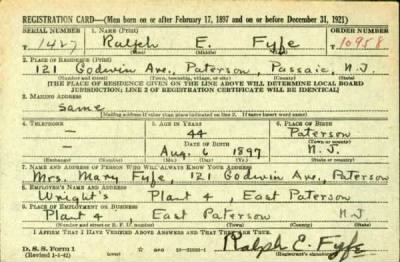 REGISTRATION CARD—(Men born on or after February 17, 1897 and on or before December 31, 1921)
SERIAL NUMBER 1. NAME (Print) ORDER NUMBER
T 1427 Ralph E. Fyfe 10958
(First) (Middle) (Last)
2. PLACE OF RESIDENCE (Print)
121 Godwin Ave., Paterson, Passaic, N.J.
(Number and street) (Town, township, village, or city) (County) (State)
[THE PLACE OF RESIDENCE GIVEN ON THE LINE ABOVE WILL DETERMINE LOCAL BOARD
JURISDICTION; LINE 2 OF REGISTRATION CERTIFICATE WILL BE IDENTICAL]
3. MAILING ADDRESS
Same
[Mailing address if other than place indicated on line 2. If same insert word same]
4. TELEPHONE 5. AGE IN YEARS 6. PLACE OF BIRTH
— 44 Paterson
DATE OF BIRTH (Town or county)
— Aug. 6 1897 N.J.
(Exchange) (Number) (Mo.) (Day) (Yr.) (State or country)
7. NAME AND ADDRESS OF PERSON WHO WILL ALWAYS KNOW YOUR ADDRESS
Mrs. Mary Fyfe, 121 Godwin Ave., Paterson
8. EMPLOYER'S NAME AND ADDRESS
Wright's Plant 4, East Paterson
9. PLACE OF EMPLOYMENT OR BUSINESS
Plant 4 East Paterson N.J.
(Number and street or R. F. D. number) (Town) (County) (State)
I AFFIRM THAT I HAVE VERIFIED ABOVE ANSWERS AND THAT THEY ARE TRUE.
D. S. S. Form 1
(Revised 1-1-42) Ralph E. Fyfe
(Registrant's signature)